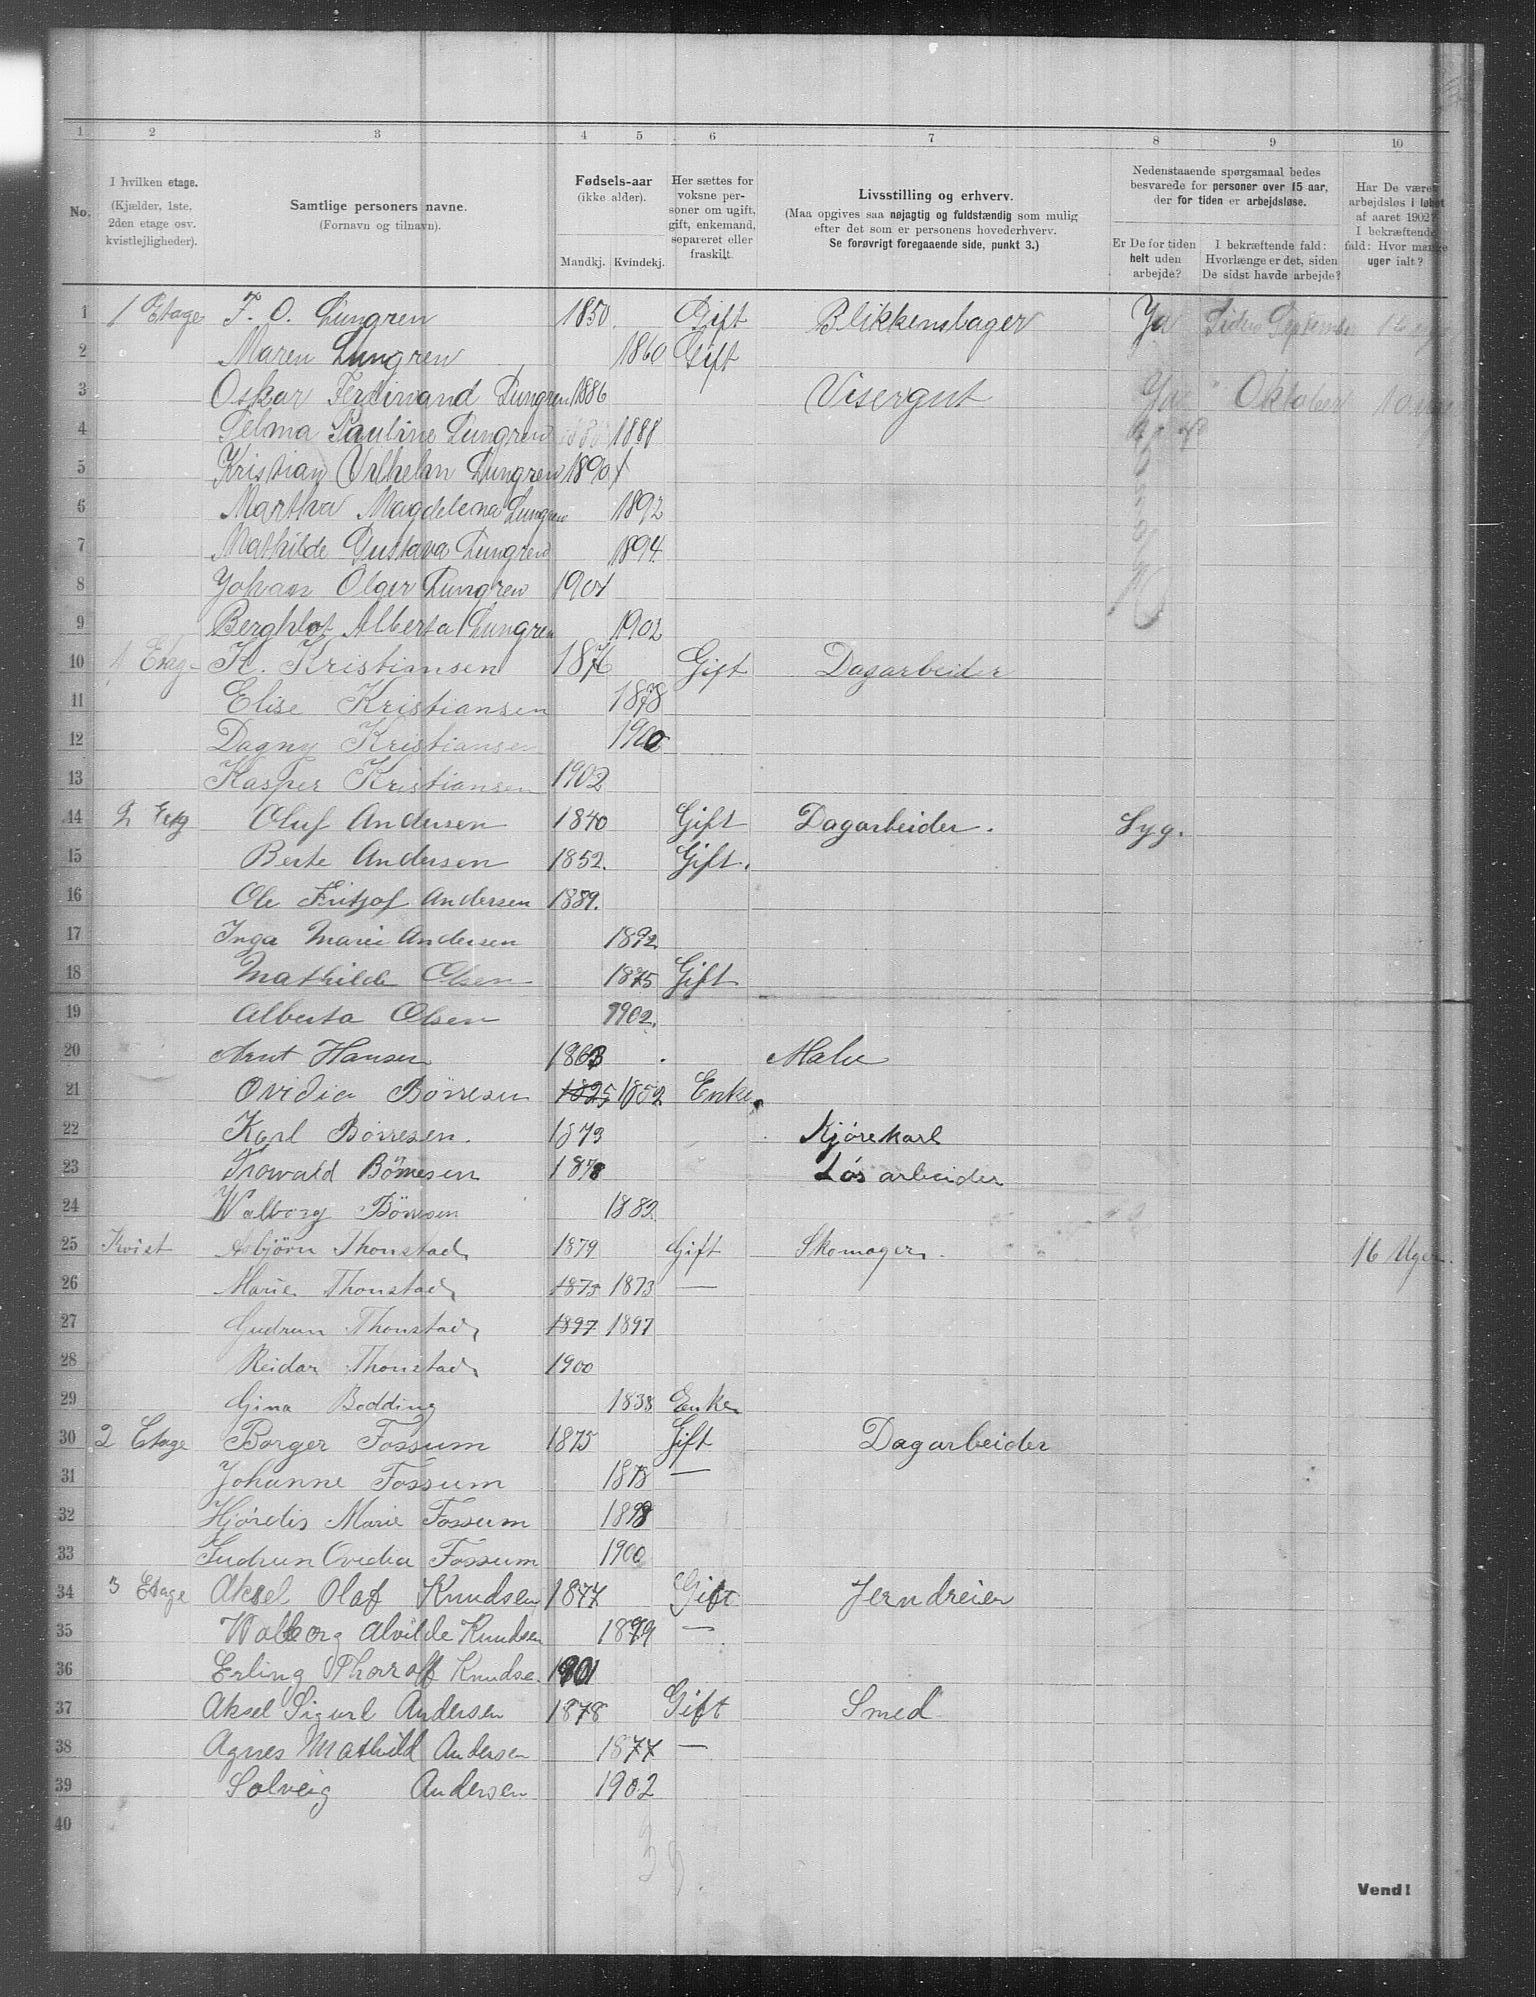 1 2 3 4 5 6 7 8 9 10
No. I hvilken etage. (Kjælder, 1ste, 2den etage osv. kvistlejligheder).
Samtlige personers navne. (Fornavn og tilnavn).
Fødsels-aar (ikke alder). Mandkj. Kvindekj.
Her sættes for voksne personer om ugift, gift, enkemand, separeret eller fraskilt.
Livsstilling og erhverv.
(Maa opgives saa nøjagtig og fuldstændig som mulig efter det som er personens hovederhverv. Se forøvrigt foregaaende side, punkt 3.)
Nedenstaaende spørgsmaal bedes besvarede for personer over 15 aar, der for tiden er arbejdsløse.
Er De for tiden helt uden arbejde?
I bekræftende fald: Hvorlænge er det, siden De sidst havde arbejde?
Har De været arbejdsløs i løbet af aaret 1902? I bekræftende fald: Hvor mange uger ialt?
1 1 Etage F. O. Lungren 1850 Gift Blikkenslager Ja Siden September
2 Maren Lungren 1860 Gift
3 Oskar Ferdinand Lungren 1886 Visergut Ja Oktober 10
4 Selma Pauline Lungren 1888
5 Kristian Vilhelm Lungren 1890
6 Martha Magdelena Lungren 1892
7 Mathilde Gustava Lungren 1894
8 Johan Olger Lungren 1901
9 Berghlot Alberta Lungren 1902
10 1 Etag K. Kristiansen 1876 Gift Dagarbeider
11 Elise Kristiansen 1878
12 Dagny Kristiansen 1900
13 Kasper Kristiansen 1902
14 2 Etg Oluf Andersen 1840 Gift Dagarbeider. Syg.
15 Berte Andersen 1852. Gift.
16 Ole Fritjof Andersen 1889.
17 Inga Marie Andersen 1892
18 Mathilde Olsen 1875 Gift
19 Alberta Olsen 1902.
20 Arnt Hansen 1863 Maler
21 Ovidia Börresen 1825 1852 Enke.
22 Karl Börresen. 1873 Kjörekarl
23 Trowald Börresen 1878 Løsarbeider
24 Walborg Börresen 1882
25 Kvist Asbjörn Thonstad 1879 Gift Skomager. 16 Uger.
26 Marie Thonstad 1873 1873 —
27 Gudrun Thonstad 1897 1897
28 Reidar Thonstad 1900
29 Gina Bodding 1838 Enke
30 2 Etage Borger Fossum 1875 Gift Dagarbeider
31 Johanne Fossum 1878 —
32 Hjørdis Marie Fossum 1898
33 Gudrun Ovedia Fossum 1900
34 3 Etage Aksel Olaf Knudsen 1877 Gift Jerndreier
35 Walborg Alvilde Knudsen 1879 —
36 Erling Knudse. 1901
37 Aksel Sigurd Andersen 1878 Gift Smed
38 Agnes Mathild Andersen 1877 —
39 Solveig Andersen 1902
40
39.
Vend!